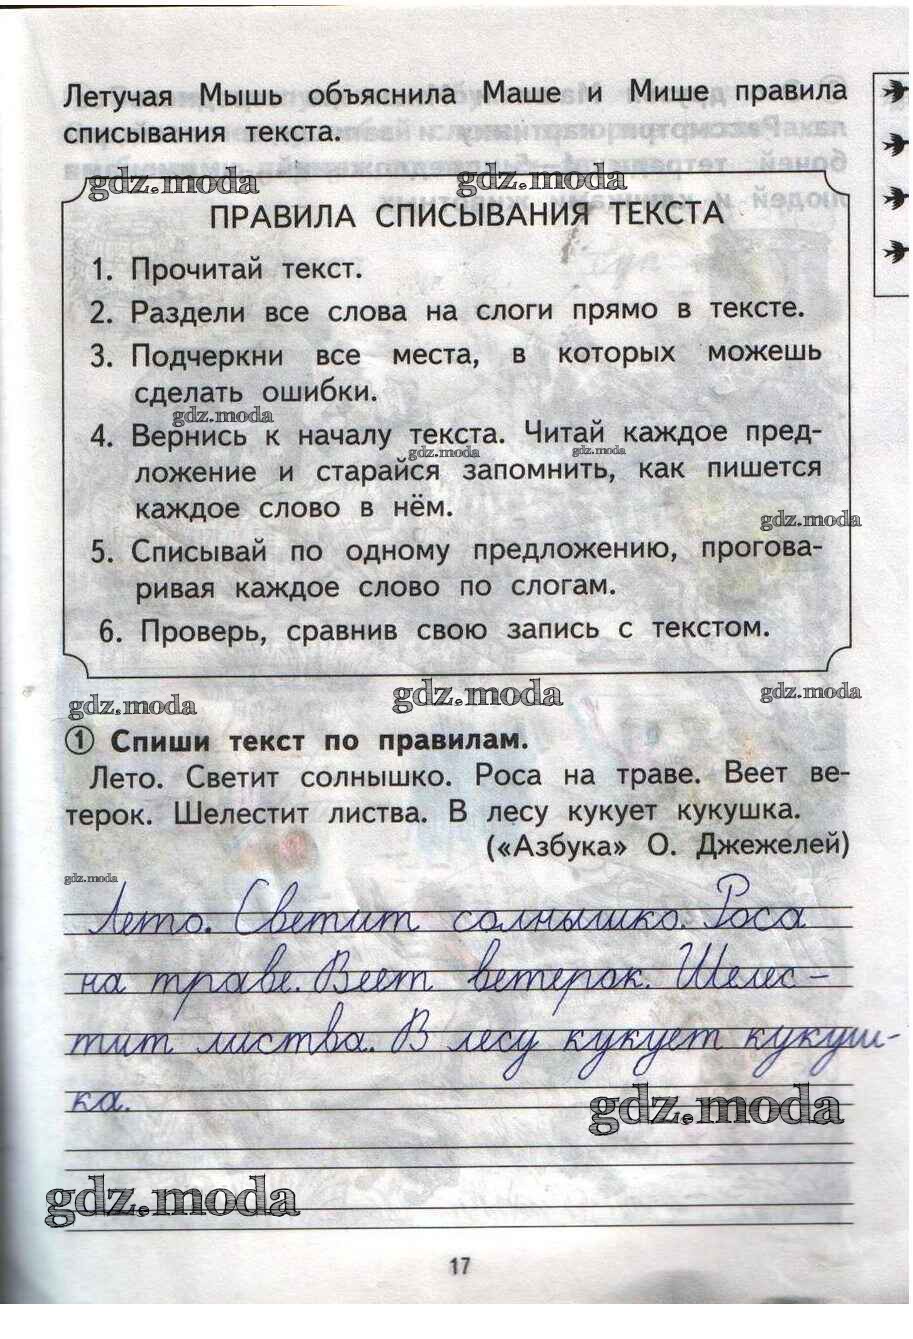 Летучая Мышь объяснила Маше и Мише правила
списывания текста.
gdz.moda gdz.moda
ПРАВИЛА СПИСЫВАНИЯ ТЕКСТА
1. Прочитай текст.
2. Раздели все слова на слоги прямо в тексте.
3. Подчеркни все места, в которых можешь
сделать ошибки.
gdz.moda
4. Вернись к началу текста. Читай каждое пред-
gdz.moda gdz.moda
ложение и старайся запомнить, как пишется
каждое слово в нём.
gdz.moda
5. Списывай по одному предложению, прогова-
ривая каждое слово по слогам.
6. Проверь, сравнив свою запись с текстом.
gdz.moda gdz.moda gdz.moda
1 Спиши текст по правилам.
Лето. Светит солнышко. Роса на траве. Веет ве-
терок. Шелестит листва. В лесу кукует кукушка.
(«Азбука» О. Джежелей)
gdz.moda
Лето. Светит солнышко. Роса
на траве. Веет ветерок. Шелес-
тит листва. В лесу кукует кукуш-
ка.
gdz.moda
gdz.moda
17